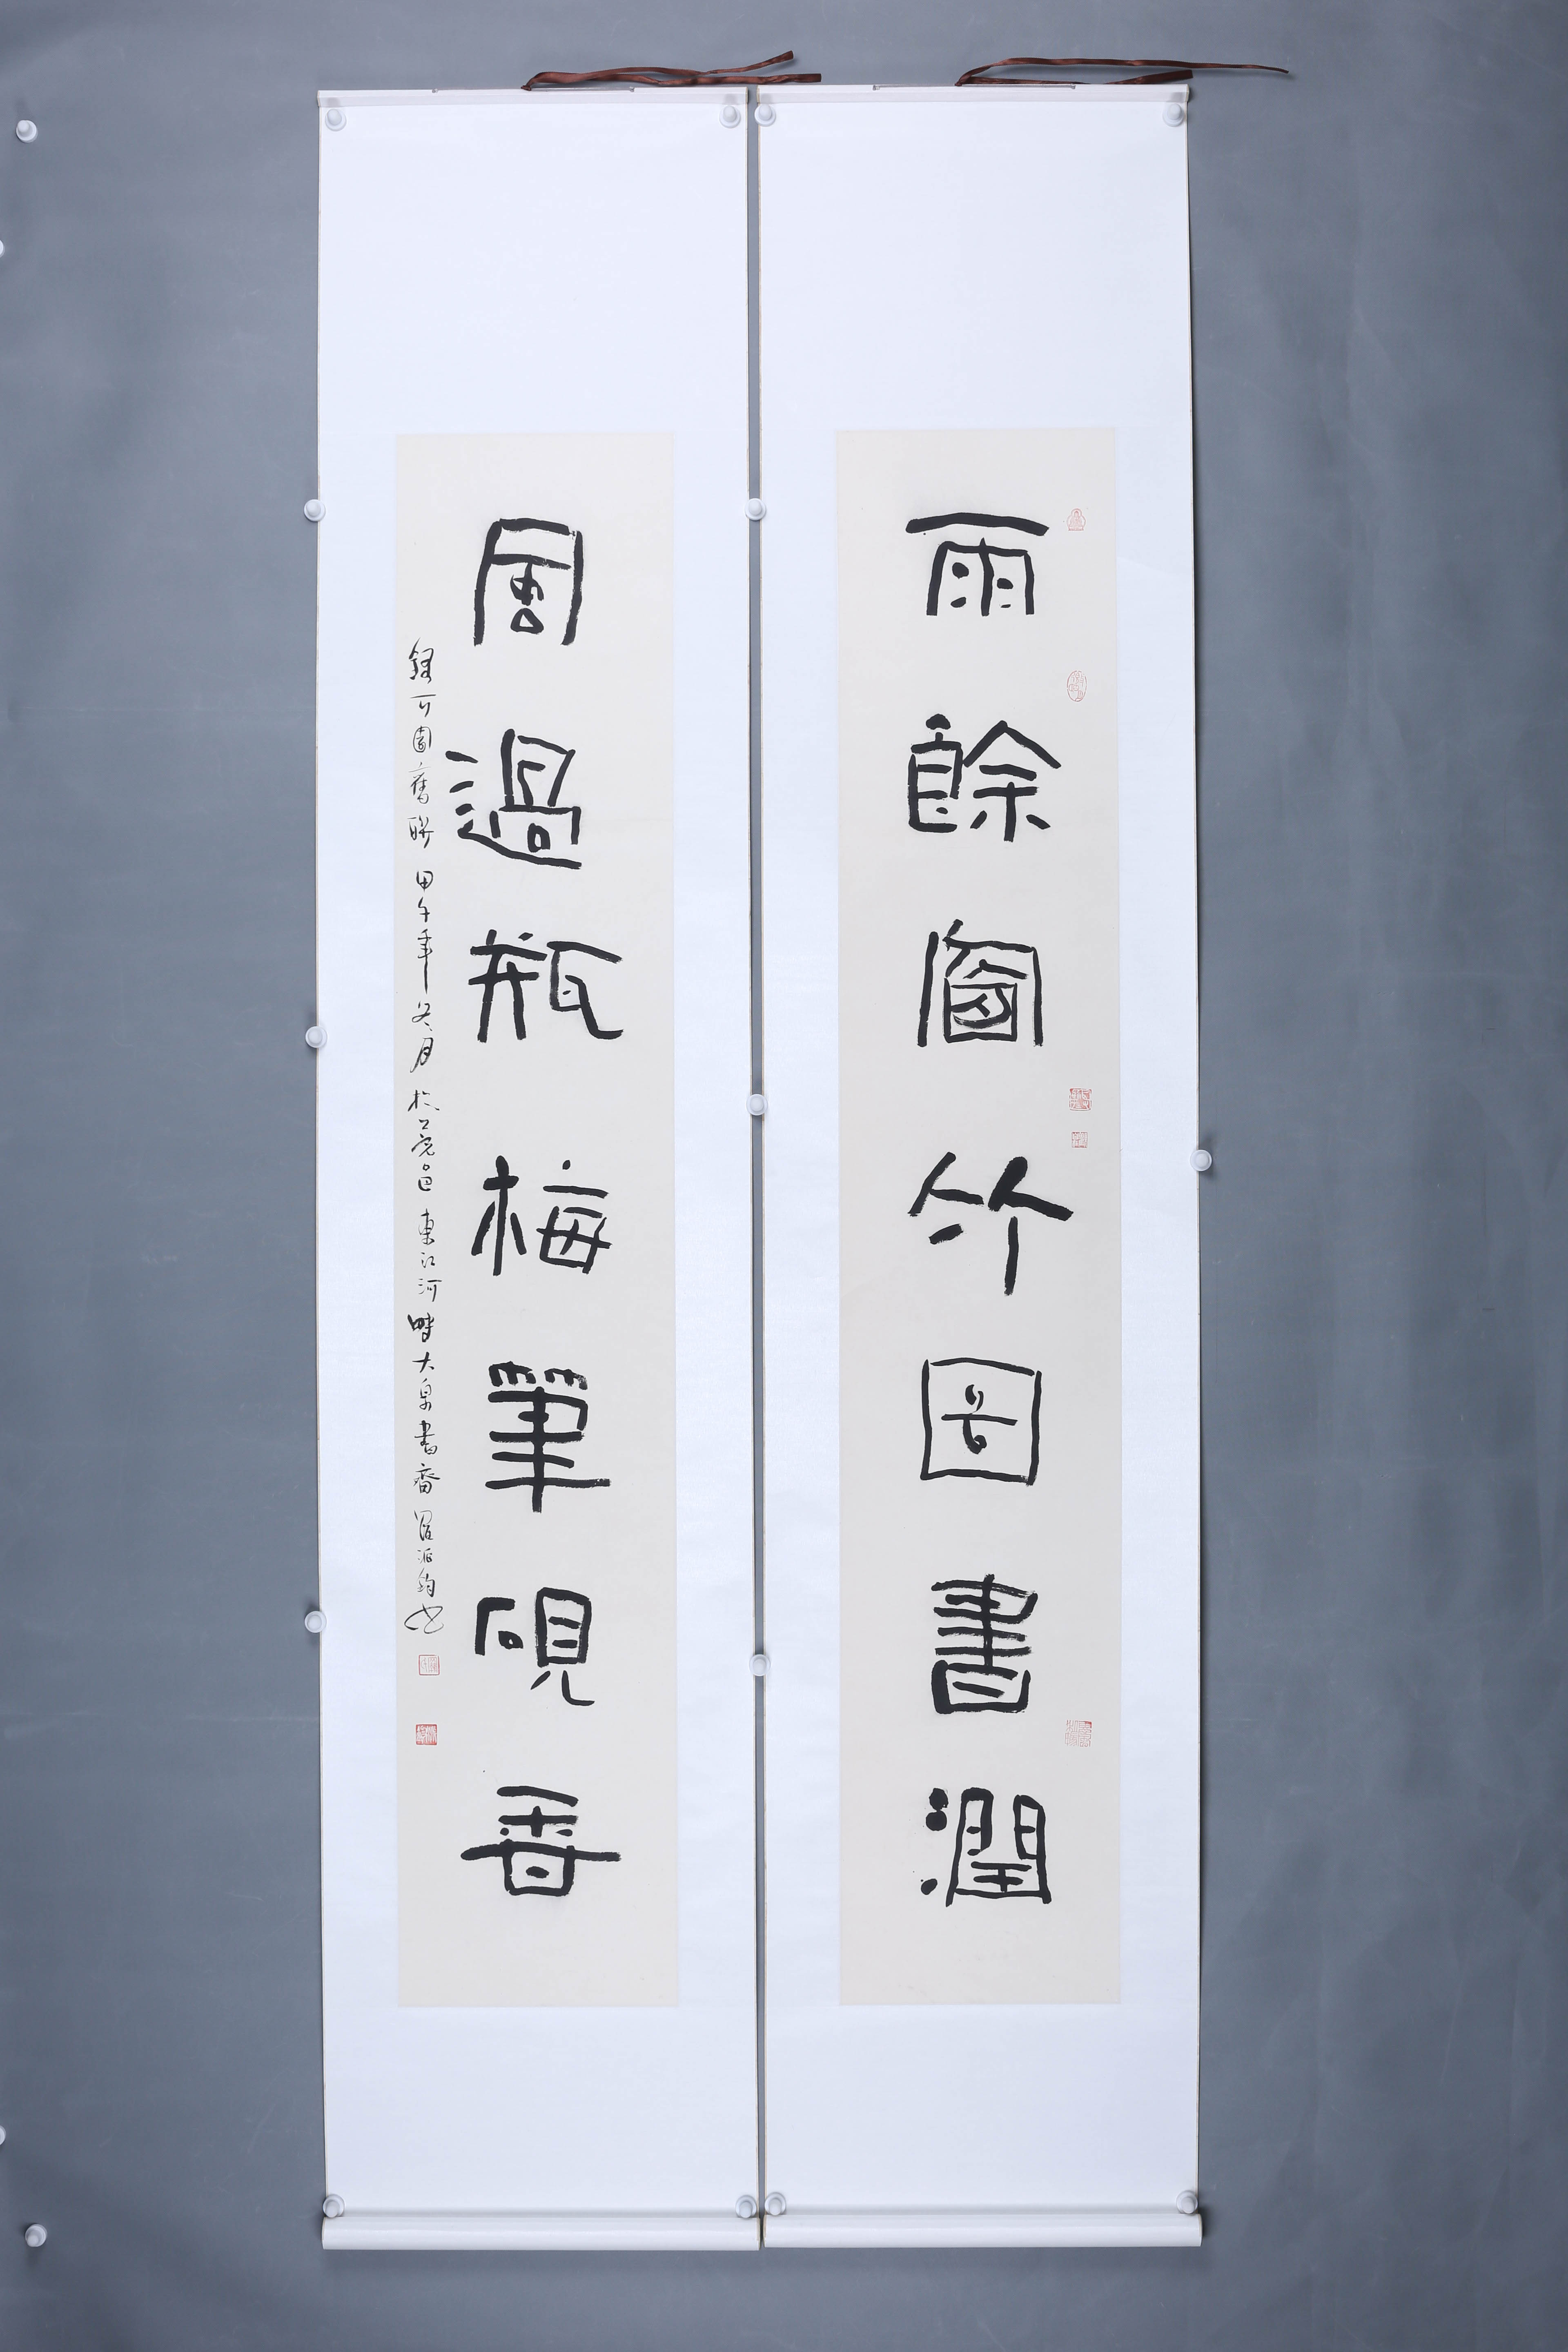 雨餘窗竹圖書潤
風過瓶梅筆硯香
錄可園舊聯 甲午年冬月 於莞邑東江河畔大泉書齋 羅沛鈞書